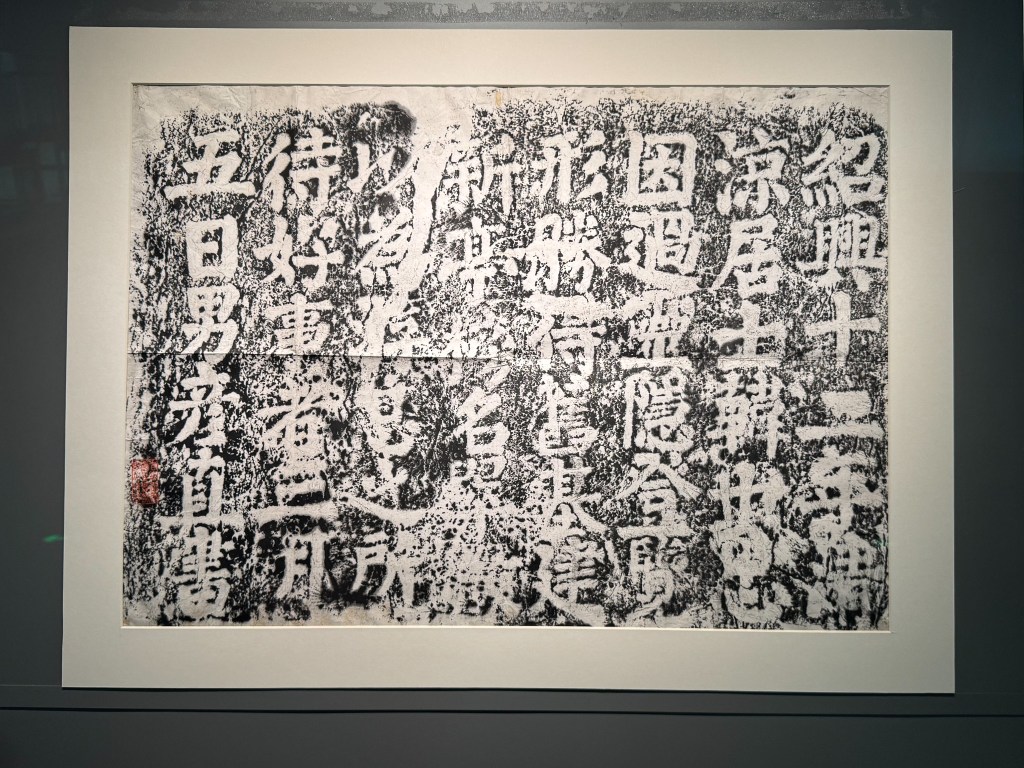 紹興十二年清
涼居士韓世忠
因過靈隱登覽
形勝得舊基建
新亭榜名翠微
以為遊息之所
待好事者三月
五日男彥直書